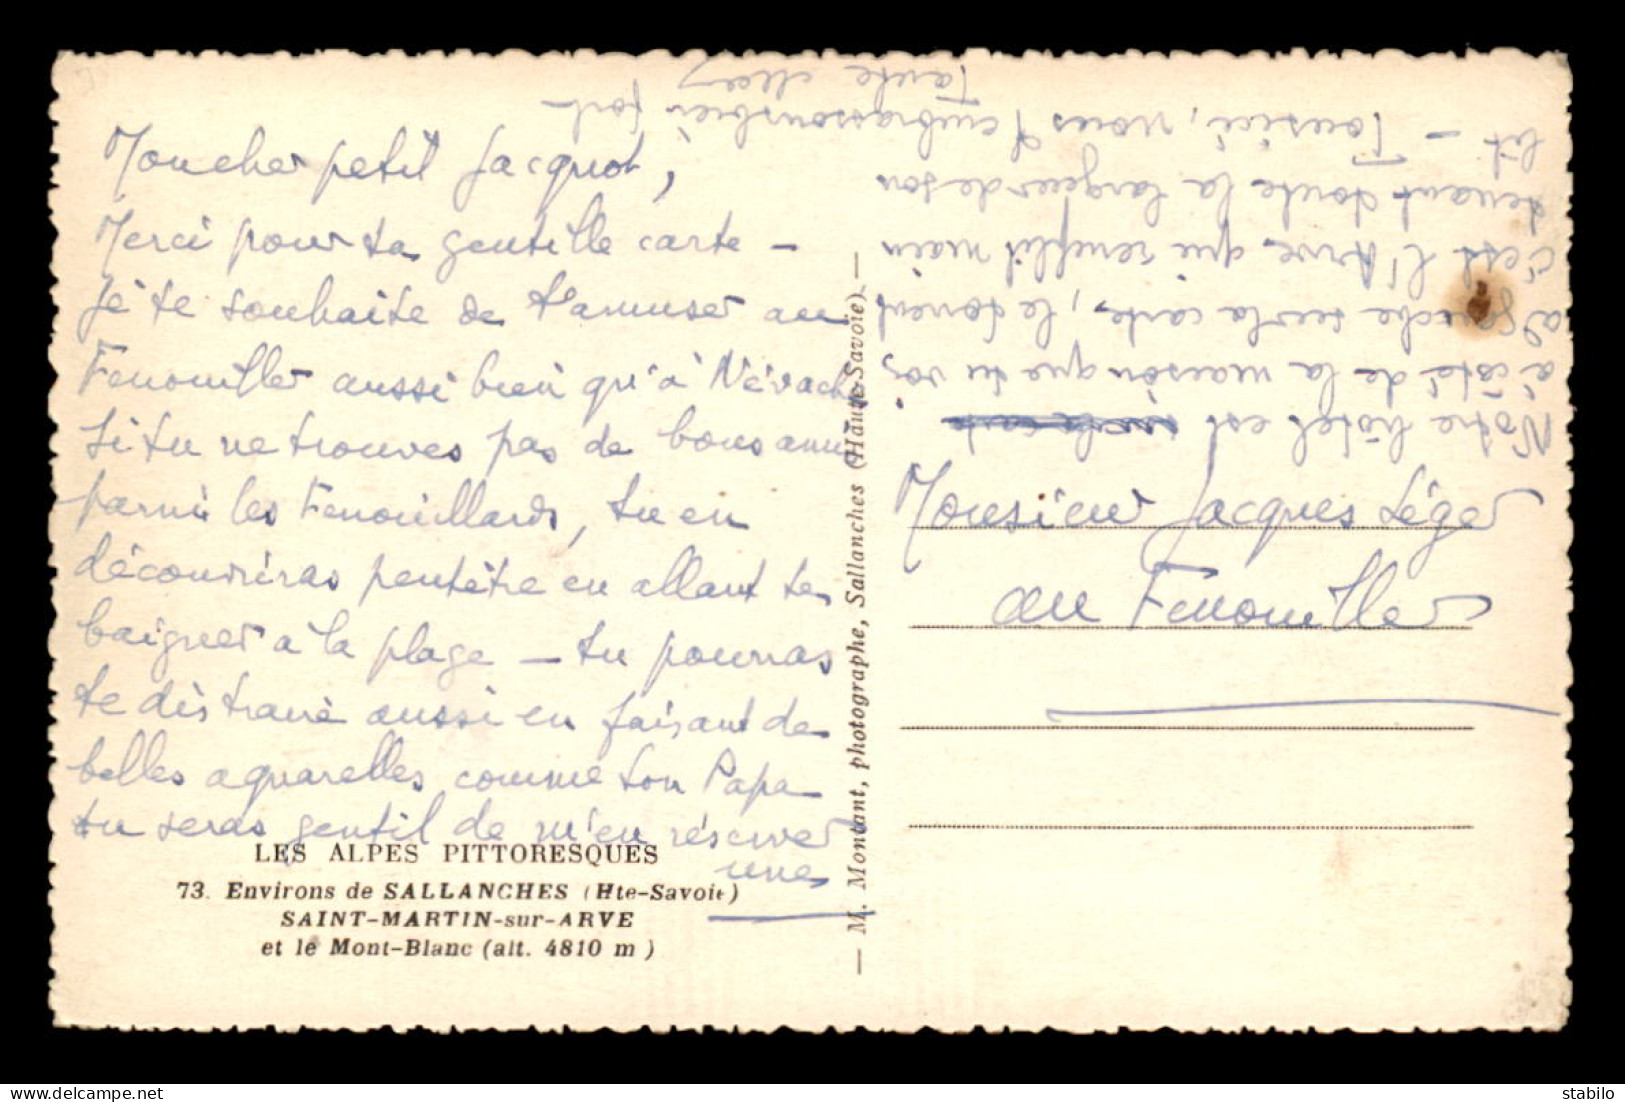 Mon cher petit Jacquot,
Merci pour ta gentille carte -
Je te souhaite de t'amuser au
Fenouiller aussi bien qu'à Névache
Si tu ne trouves pas de bons amis
parmi les Fenouillards, tu en
découvriras peutêtre en allant te
baigner à la plage - tu pourras
te distraire aussi en faisant de
belles aquarelles comme ton Papa
tu seras gentil de m'en réserver
une
LES ALPES PITTORESQUES
73. Environs de SALLANCHES (Hte-Savoie)
SAINT-MARTIN-sur-ARVE
et le Mont-Blanc (alt. 4810 m)
— M. Montant, photographe, Sallanches (Haute-Savoie) —
Notre hôtel est
à côté de la maison que tu vois
à gauche sur la carte, le torrent
c'est l'Arve qui remplit main
tenant toute la largeur de son
lit - Tous ici, nous t'embrassons bien fort
Tante
Monsieur Jacques Léger
au Fenouiller
stabilo